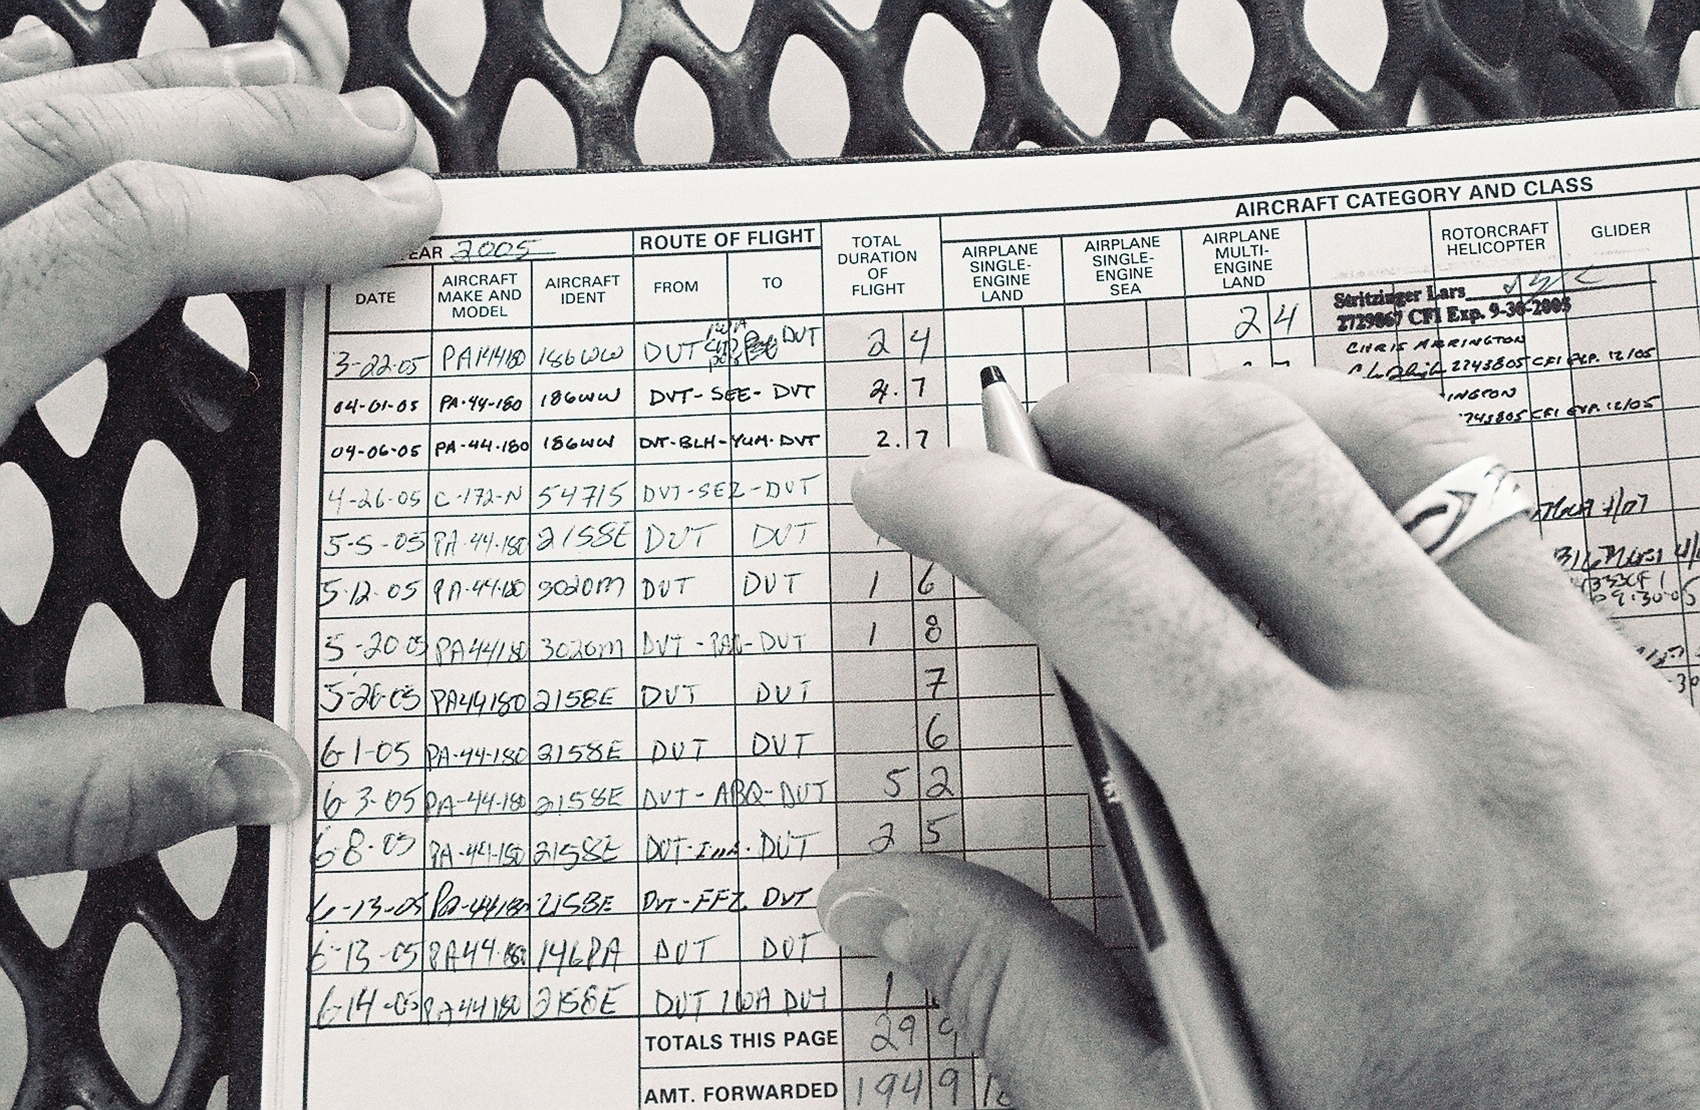 AIRCRAFT CATEGORY AND CLASS
EAR 2005 ROUTE OF FLIGHT TOTAL DURATION OF FLIGHT AIRPLANE SINGLE-ENGINE LAND AIRPLANE SINGLE-ENGINE SEA AIRPLANE MULTI-ENGINE LAND ROTORCRAFT HELICOPTER GLIDER
DATE AIRCRAFT MAKE AND MODEL AIRCRAFT IDENT FROM TO
Stritzinger Lars
2729867 CFI Exp. 9-30-2005
3-22-05 PA44180 186WW DVT DVT 2 4 2 4
CHRIS ARRINGTON
2743805 CFI EXP. 12/05
04-01-05 PA-44-180 186WW DVT-SEE-DVT 2.7
INGTON
743805 CFI EXP. 12/05
04-06-05 PA-44-180 186WW DVT-BLH-YUM-DVT 2.7
4-26-05 C-172-N 54715 DVT-SEZ-DVT
5-5-05 PA-44-180 2158E DVT DVT
5-12-05 PA-44-180 3020M DVT DVT 1 6
5-20-05 PA44180 3020M DVT - DVT 1 8
5-26-05 PA44180 2158E DVT DVT 7
6-1-05 PA-44-180 2158E DVT DVT 6
6-3-05 PA-44-180 2158E DVT-ABQ-DVT 5 2
6-8-05 PA-44-180 2158E DVT- DVT 2 5
6-13-05 PA-44180 2158E DVT-FFZ DVT
6-13-05 PA44-180 146PA DVT DVT
6-14-05 PA44180 2158E DVT IWA DVT 1
TOTALS THIS PAGE 29 9
AMT. FORWARDED 194 9